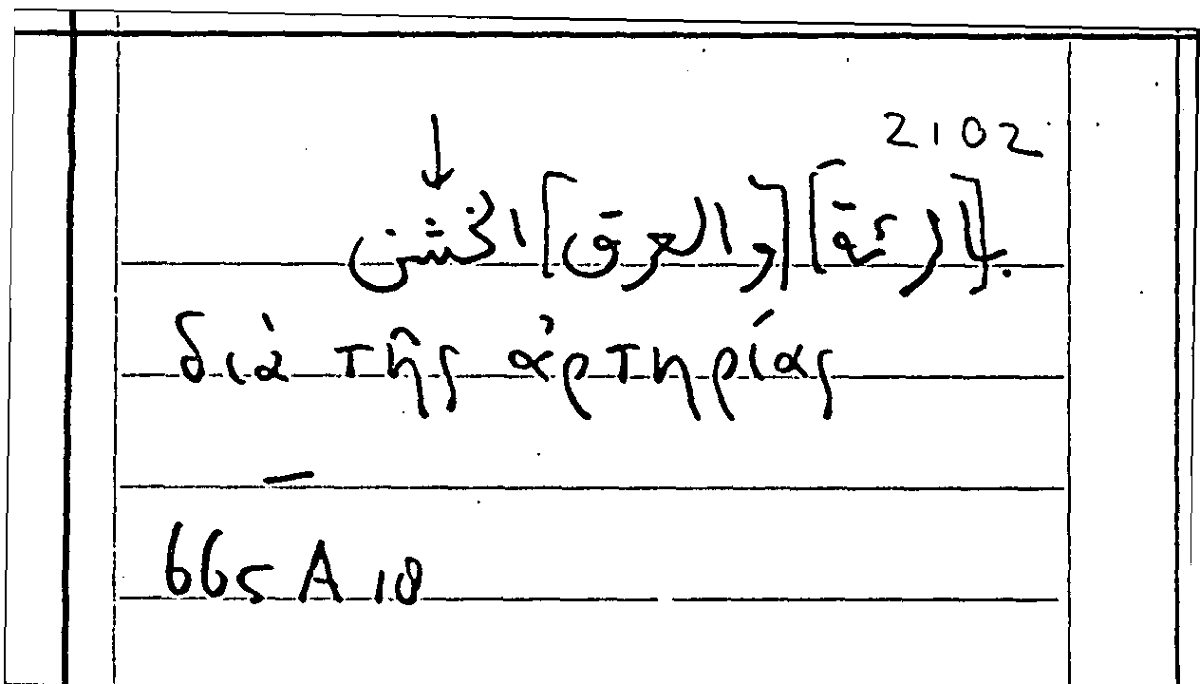 2102
[بالرئة] [والعرق] الخشن
διὰ τῆς ἀρτηρίας
—
665 A 18